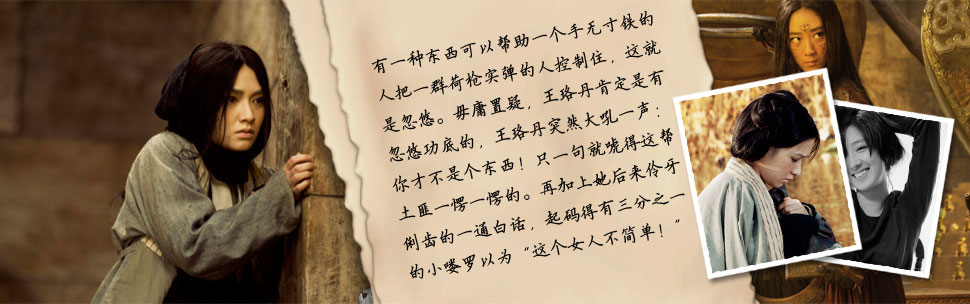 有一种东西可以帮助一个手无寸铁的
人把一群荷枪实弹的人控制住，这就
是忽悠。毋庸置疑，王珞丹肯定是有
忽悠功底的，王珞丹突然大吼一声：
你才不是个东西！只一句就唬得这帮
土匪一愣一愣的。再加上她后来伶牙
俐齿的一通白话，起码得有三分之一
的小喽罗以为“这个女人不简单！”